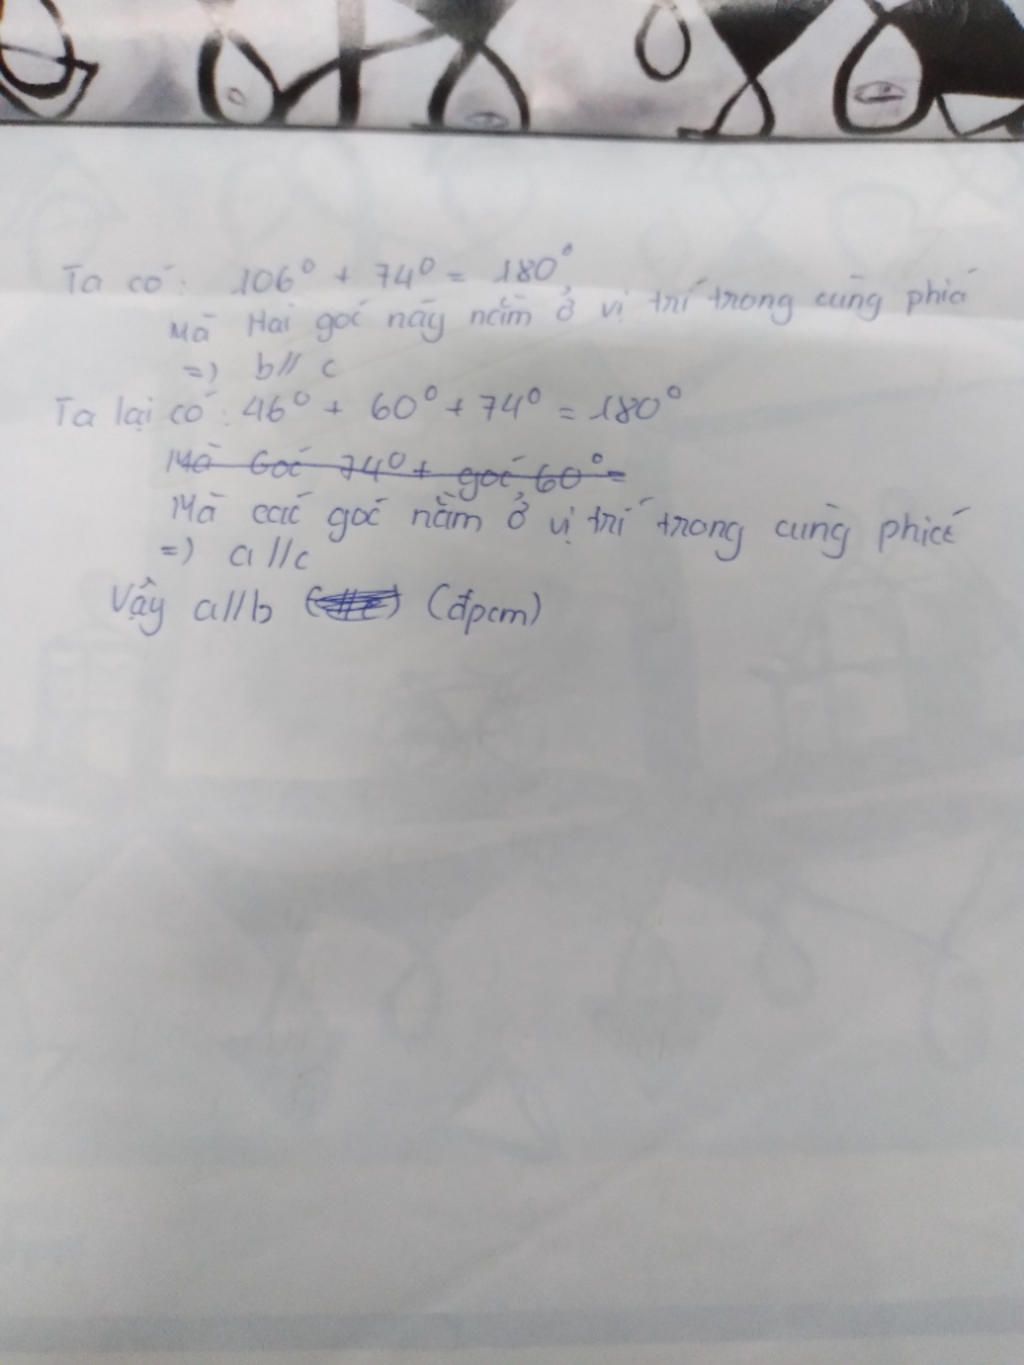 Ta có: 106° + 74° = 180°,
Mà Hai góc này nằm ở vị trí trong cùng phía
=) b// c
Ta lại có: 46° + 60° + 74° = 180°
Mà Góc 74° + góc 60° =
Mà các góc nằm ở vị trí trong cùng phía
=) a //c
Vậy a//b (đpcm)